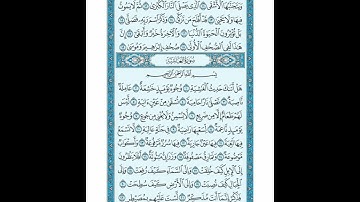 وَيَتَجَنَّبُهَا ٱلْأَشْقَى ١١ ٱلَّذِى يَصْلَى ٱلنَّارَ ٱلْكُبْرَىٰ ١٢ ثُمَّ لَا يَمُوتُ
فِيهَا وَلَا يَحْيَىٰ ١٣ قَدْ أَفْلَحَ مَن تَزَكَّىٰ ١٤ وَذَكَرَ ٱسْمَ رَبِّهِۦ فَصَلَّىٰ ١٥
بَلْ تُؤْثِرُونَ ٱلْحَيَوٰةَ ٱلدُّنْيَا ١٦ وَٱلْءَاخِرَةُ خَيْرٌ وَأَبْقَىٰٓ ١٧ إِنَّ
هَٰذَا لَفِى ٱلصُّحُفِ ٱلْأُولَىٰ ١٨ صُحُفِ إِبْرَٰهِيمَ وَمُوسَىٰ ١٩
سُورَةُ الغَاشِيَةِ
بِسْمِ ٱللَّهِ ٱلرَّحْمَٰنِ ٱلرَّحِيمِ
هَلْ أَتَىٰكَ حَدِيثُ ٱلْغَٰشِيَةِ ١ وُجُوهٌ يَوْمَئِذٍ خَٰشِعَةٌ ٢ عَامِلَةٌ
نَّاصِبَةٌ ٣ تَصْلَىٰ نَارًا حَامِيَةً ٤ تُسْقَىٰ مِنْ عَيْنٍ ءَانِيَةٍ ٥ لَّيْسَ
لَهُمْ طَعَامٌ إِلَّا مِن ضَرِيعٍ ٦ لَّا يُسْمِنُ وَلَا يُغْنِى مِن جُوعٍ ٧
وُجُوهٌ يَوْمَئِذٍ نَّاعِمَةٌ ٨ لِّسَعْيِهَا رَاضِيَةٌ ٩ فِى جَنَّةٍ عَالِيَةٍ ١٠ لَّا تَسْمَعُ
فِيهَا لَٰغِيَةً ١١ فِيهَا عَيْنٌ جَارِيَةٌ ١٢ فِيهَا سُرُرٌ مَّرْفُوعَةٌ ١٣ وَأَكْوَابٌ
مَّوْضُوعَةٌ ١٤ وَنَمَارِقُ مَصْفُوفَةٌ ١٥ وَزَرَابِىُّ مَبْثُوثَةٌ ١٦ أَفَلَا يَنظُرُونَ
إِلَى ٱلْإِبِلِ كَيْفَ خُلِقَتْ ١٧ وَإِلَى ٱلسَّمَآءِ كَيْفَ رُفِعَتْ ١٨ وَإِلَى
ٱلْجِبَالِ كَيْفَ نُصِبَتْ ١٩ وَإِلَى ٱلْأَرْضِ كَيْفَ سُطِحَتْ ٢٠
فَذَكِّرْ إِنَّمَآ أَنتَ مُذَكِّرٌ ٢١ لَّسْتَ عَلَيْهِم بِمُصَيْطِرٍ ٢٢